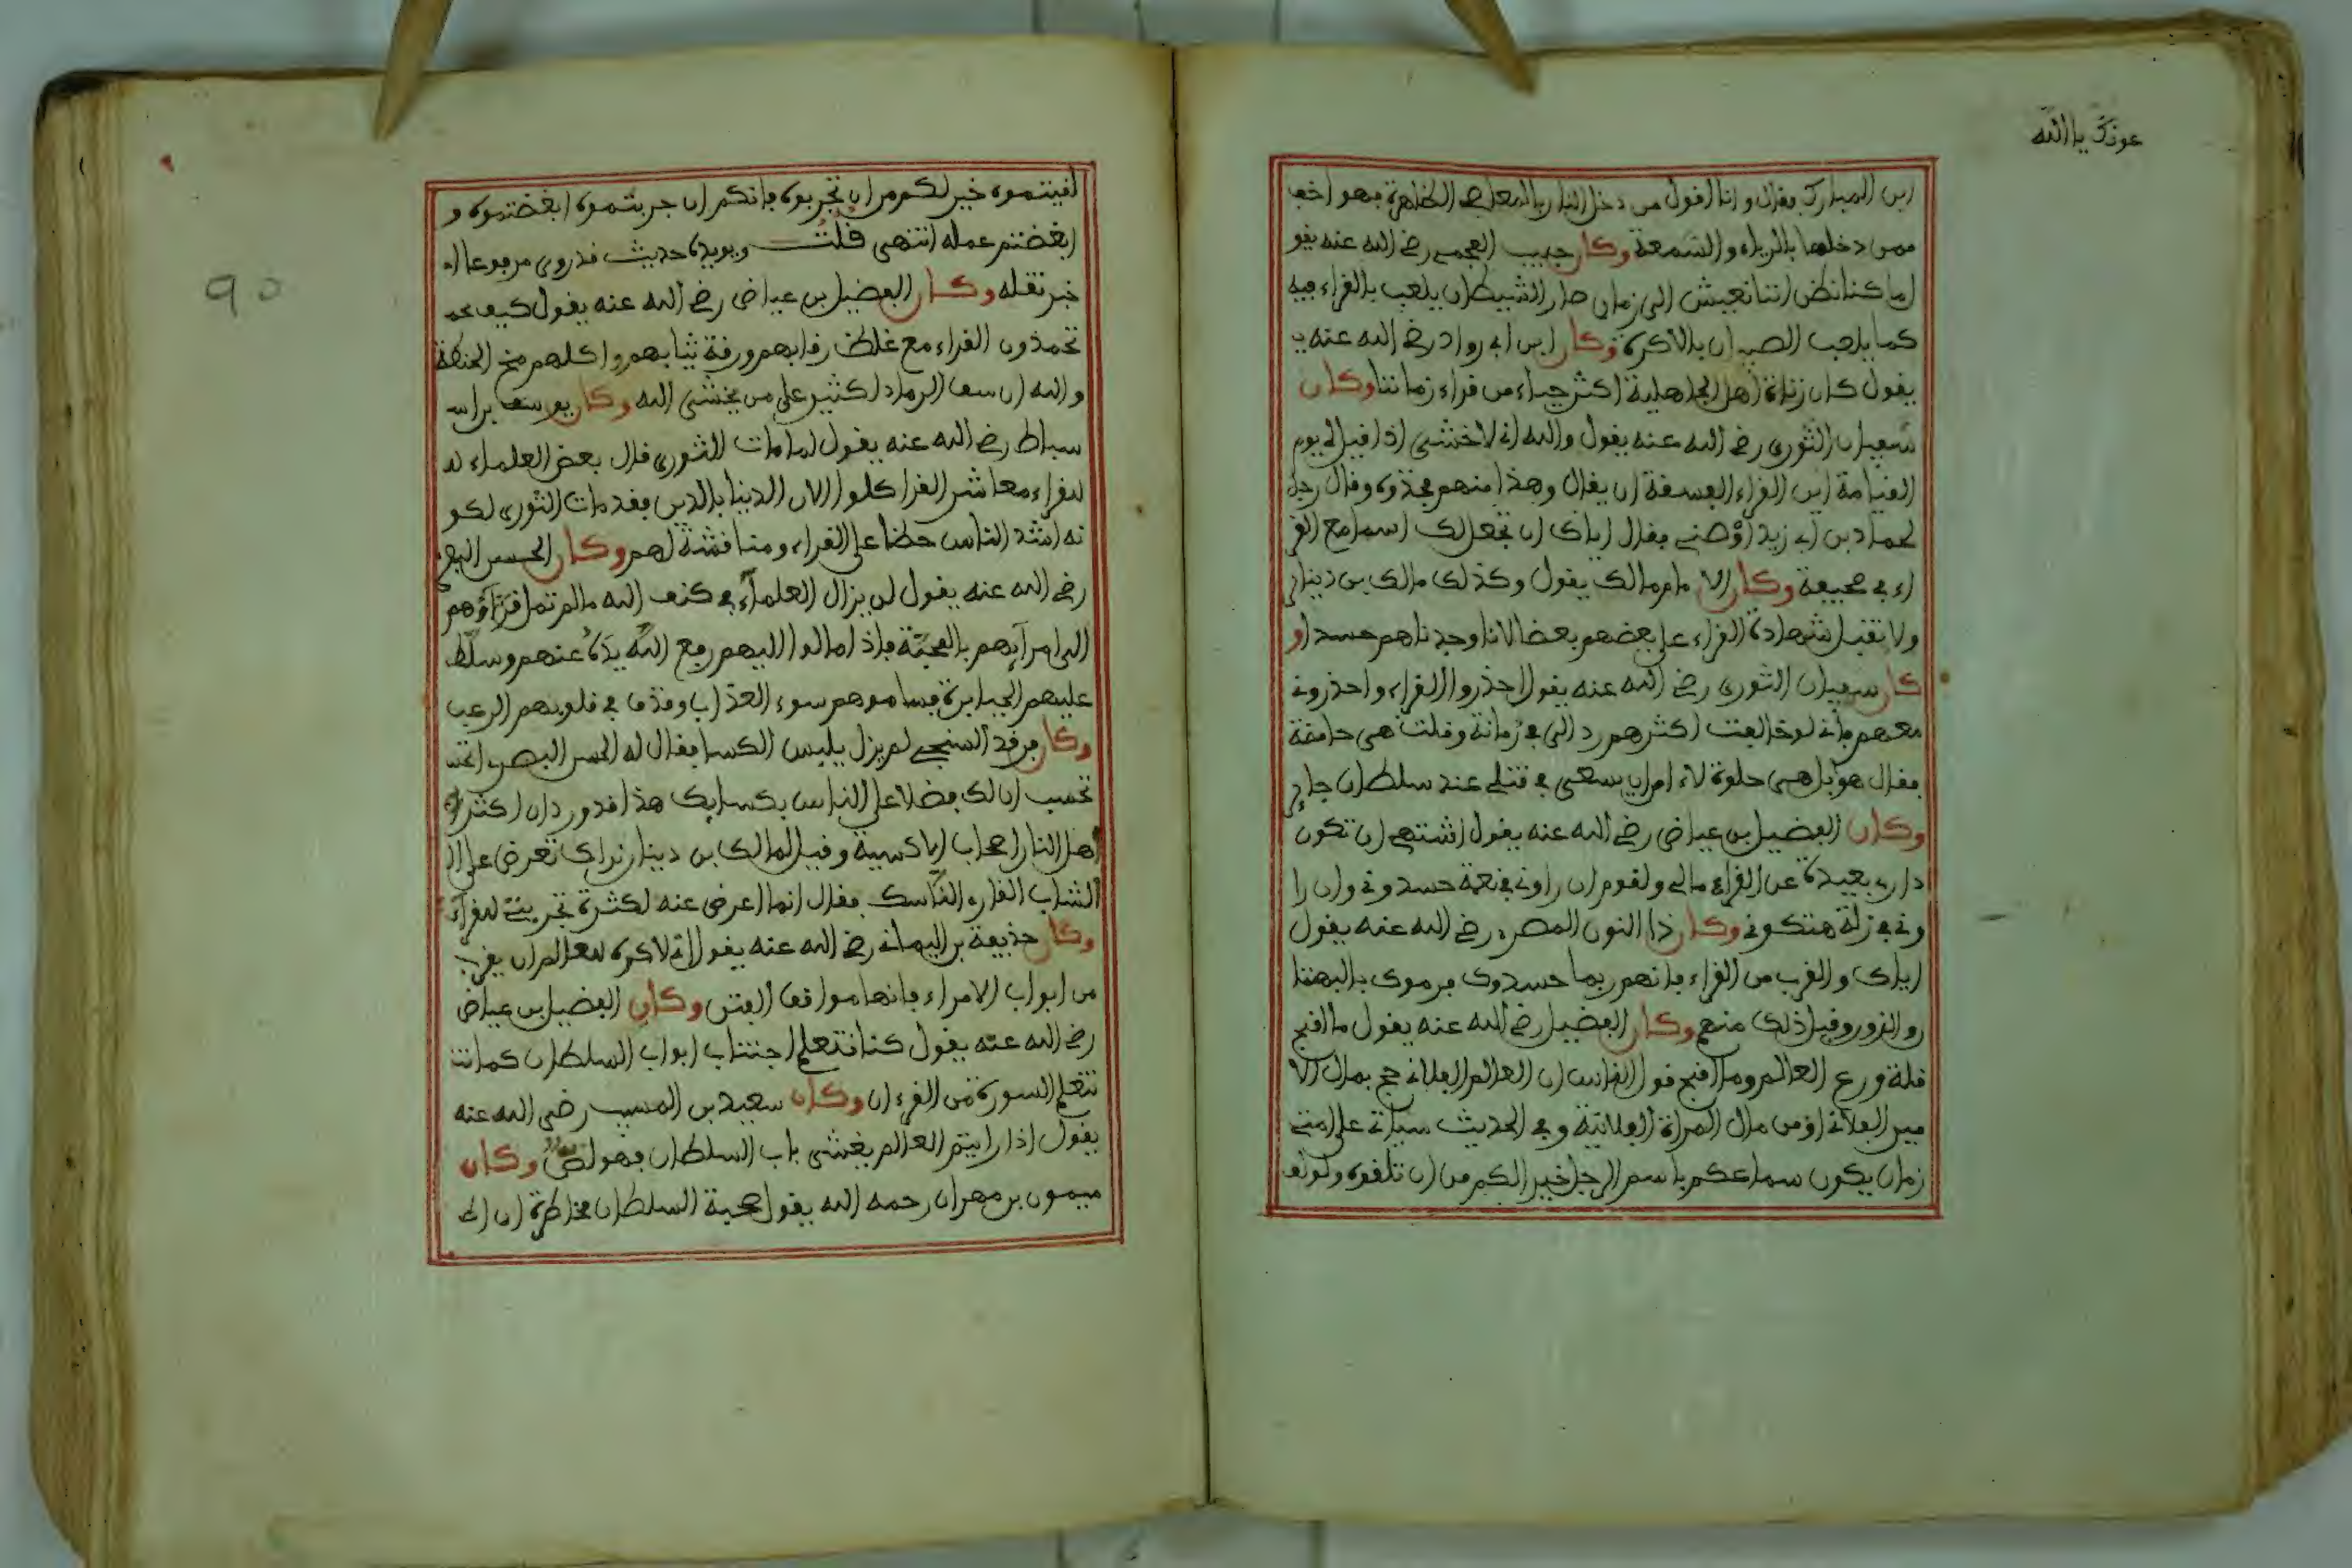 عونك يا الله
ابن المبارك فقال وانا اقول من دخل النار بالمعاصي الظاهرة فهو اخف
ممن دخلها بالرياء والسمعة وكان حبيب العجمي رضي الله عنه يقو
ل ما كنا نظن اننا نعيش الى زمان صار الشيطان يلعب بالقراء فيه
كما يلعب الصبيان بالاكرة وكان ابن ابي رواد رضي الله عنه يـ
يقول كان زناة اهل الجاهلية اكثر حياء من قراء زماننا وكان
سفيان الثوري رضي الله عنه يقول والله اني لاخشى اذا قيل لي يوم
القيامة اين القراء الفسقة ان يقال وهذا منهم فخذوه وقال رجل
لحماد بن ابي زيد اوصني فقال اياك ان تجعل لك اسما مع القر
اء في صحيفة وكان الامام مالك يقول وكذلك مالك بن دينار
ولا تقبل شهادة القراء على بعضهم بعضا لانا وجدناهم حسدا و
كان سفيان الثوري رضي الله عنه يقول احذروا القراء واحذروني
معهم فاني لو خالفت اكثرهم ودا لي في رمانة وقلت هي حامضة
فقال هو بل هي حلوة لاء امن ان يسعى في قتلي عند سلطان جاير
وكان الفضيل بن عياض رضي الله عنه يقول اشتهي ان تكون
داري بعيدة عن القراء مالي ولقوم ان راوني في نعمة حسدوني وان را
وني في زلة هتكوني وكان ذا النون المصري رضي الله عنه يقول
اياك والقرب من القراء فانهم ربما حسدوك فرموك بالبهتا
ن والزور وقبل ذلك منهم وكان الفضيل رضي الله عنه يقول ما اقبح
قلة ورع العالم وما اقبح قول الناس ان العالم الفلاني حج بمال الا
مير الفلاني او من مال المراة الفلانية وفي الحديث سياتي على امتي
زمان يكون سماعكم باسم الرجل خير الكم من ان تلقوه ولو لـقـ
لقيتموه خير لكم من ان تجربوه فانكم ان جربتموه ابغضتموه و
ابغضتم عمله انتهى قلت ويويده حديث قد روي مرفوعا ا
خبر تقله وكان الفضيل بن عياض رضي الله عنه يقول كيف
تحمدون القراء مع غلظ رقابهم ورقة ثيابهم واكلهم مخ الحنطة
والله ان سف الرماد لكثير على من يخشى الله وكان يوسف بن اسـ
سباط رضي الله عنه يقول لما مات الثوري قال بعض العلماء لـ
للقراء معاشر القرا كلوا الان الدنيا بالدين فقد مات الثوري لكو
نه اشد الناس حطا على القراء ومناقشة لهم وكان الحسن البصري
رضي الله عنه يقول لن يزال العلماء في كنف الله ما لم تمل قراؤهم
الى امرآيهم بالمحبة فاذا مالوا اليهم رفع الله يده عنهم وسلط
عليهم الجبابرة فساموهم سوء العذاب وقذف في قلوبهم الرعب
وكان فرقد السنجي لم يزل يلبس الكسا فقال له الحسن البصري
تحسب ان لك فضلا على الناس بكسايك هذا قد ورد ان اكثر
اهل النار اصحاب الاكسية وقيل لمالك بن دينار نراك تعرض على ا
الشاب القاري الناسك فقال انما اعرض عنه لكثرة تجربتي للقراء
وكان حذيفة بن اليماني رضي الله عنه يقول اني لاكره للعالم ان يقرب
من ابواب الامراء فانها مواقف الفتن وكان الفضيل بن عياض
رضي الله عنه يقول كنا نتعلم اجتناب ابواب السلطان كما نتـ
نتعلم السورة من القرءان وكان سعيد بن المسيب رضي الله عنه
يقول اذا رايتم العالم يغشى باب السلطان فهو لص وكان
ميمون بن مهران رحمه الله يقول صحبة السلطان مخاطرة ان ا
90